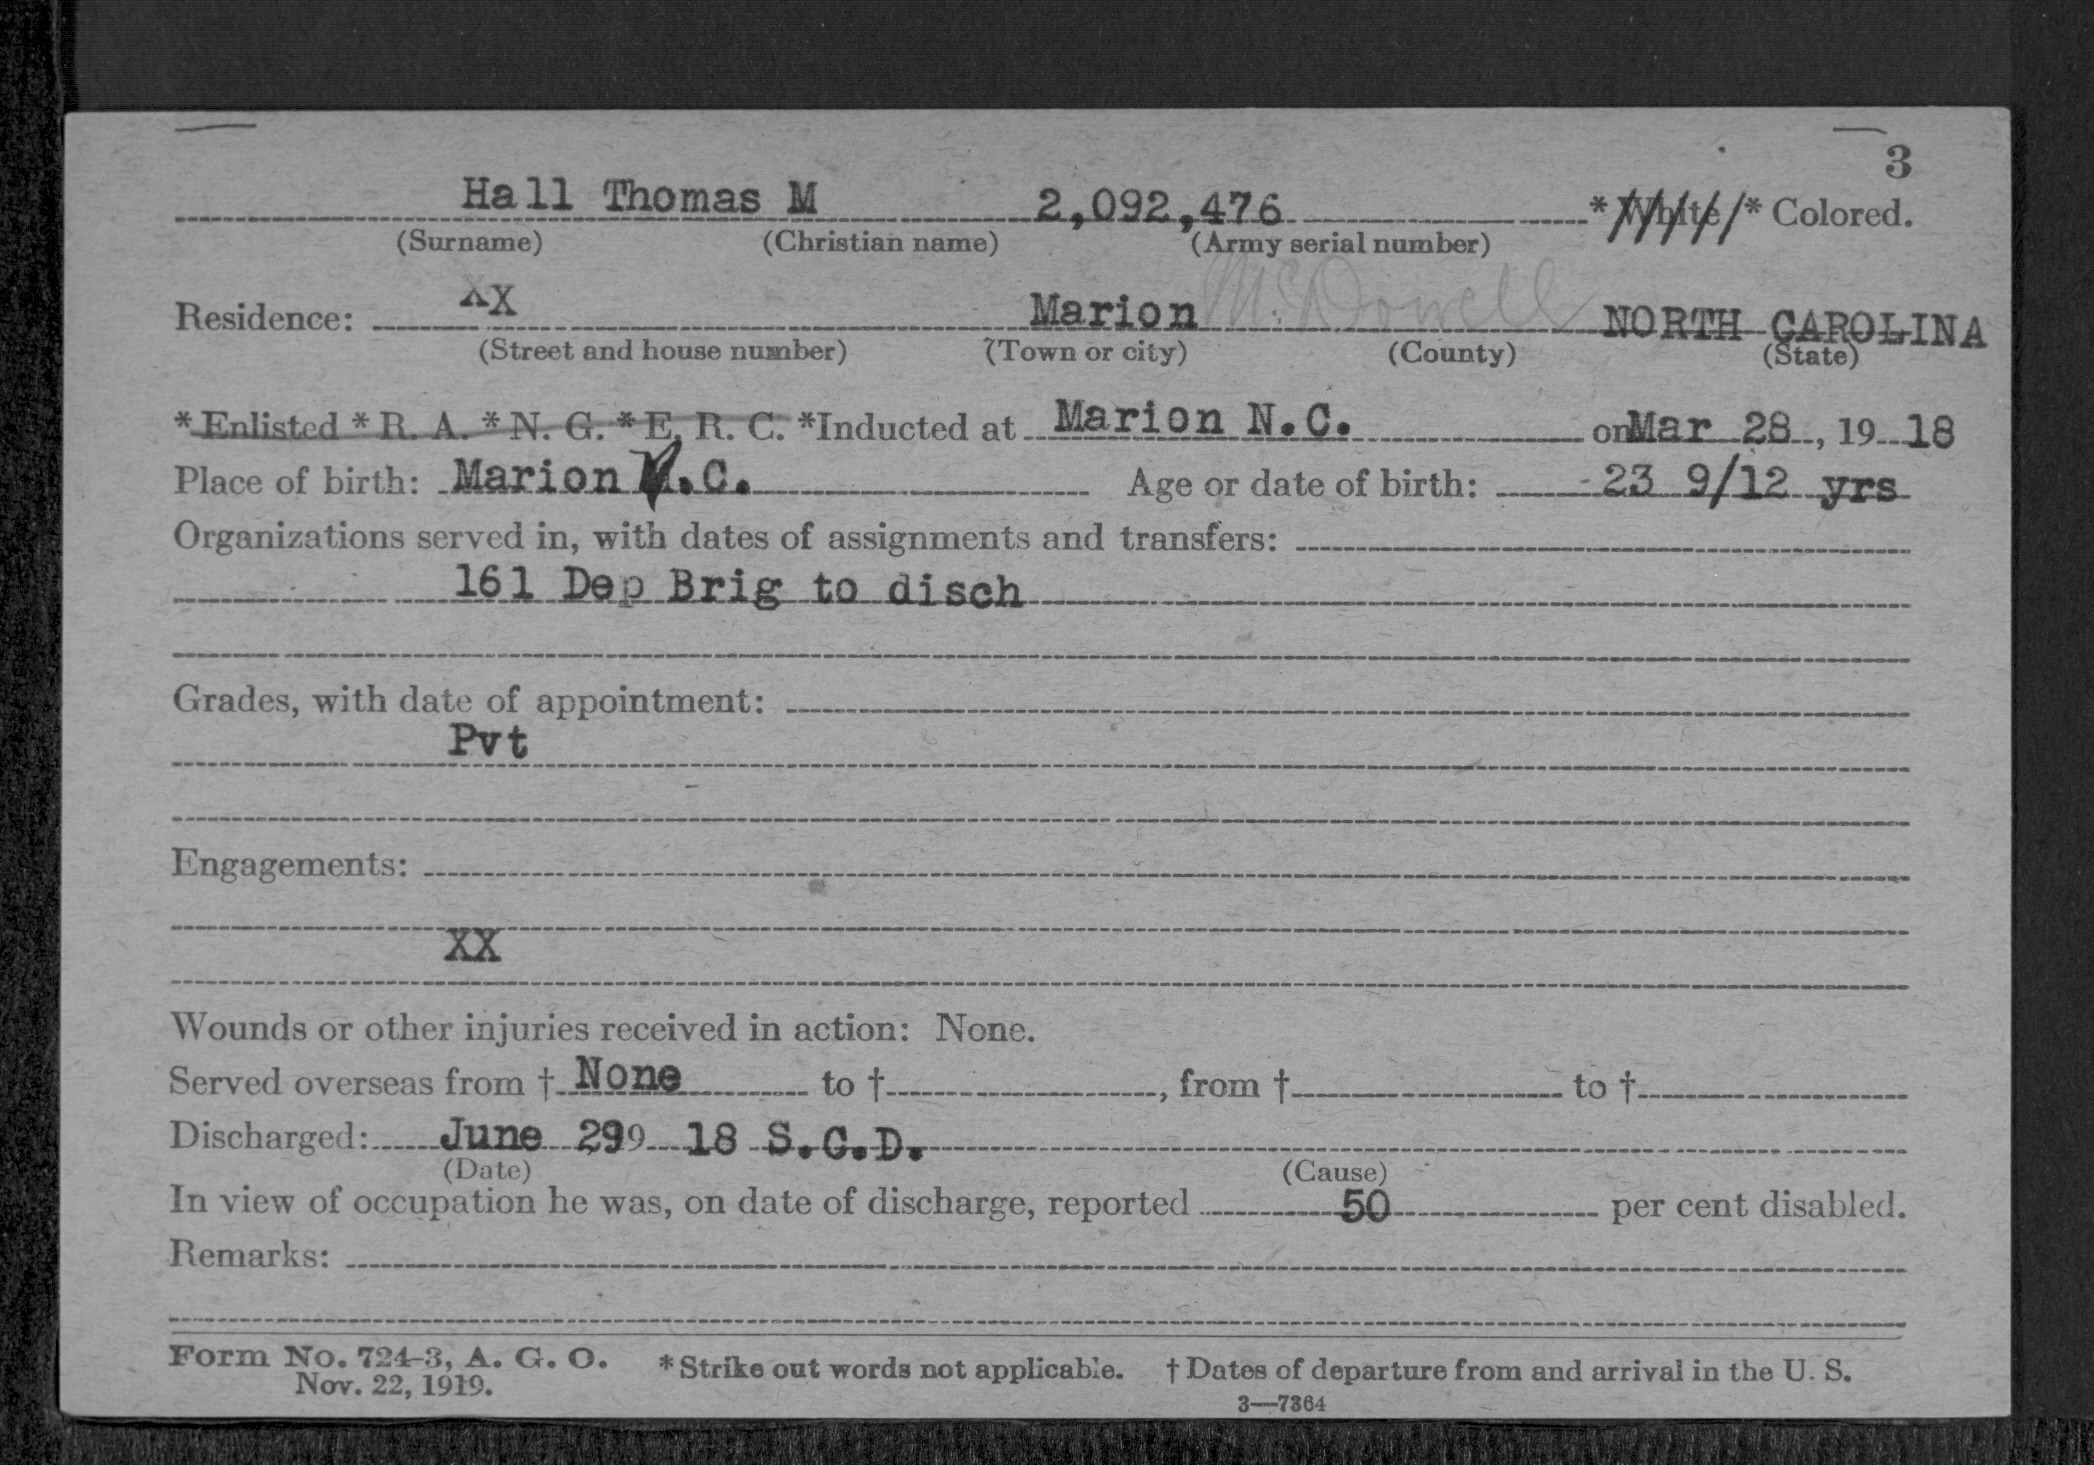 3
Hall Thomas M 2,092,476 * White * Colored.
(Surname) (Christian name) (Army serial number)
Residence: XX Marion McDowell NORTH CAROLINA
(Street and house number) (Town or city) (County) (State)
* Enlisted * R. A. * N. G. * E. R. C. *Inducted at Marion N.C. on Mar 28, 19 18
Place of birth: Marion N.C. Age or date of birth: 23 9/12 yrs
Organizations served in, with dates of assignments and transfers:
161 Dep Brig to disch
Grades, with date of appointment:
Pvt
Engagements:
XX
Wounds or other injuries received in action: None.
Served overseas from † None to †, from † to †
Discharged: June 29 18 S.C.D.
(Date) (Cause)
In view of occupation he was, on date of discharge, reported 50 per cent disabled.
Remarks:
Form No. 724-3, A. G. O. * Strike out words not applicable. † Dates of departure from and arrival in the U. S.
Nov. 22, 1919.
3—7364